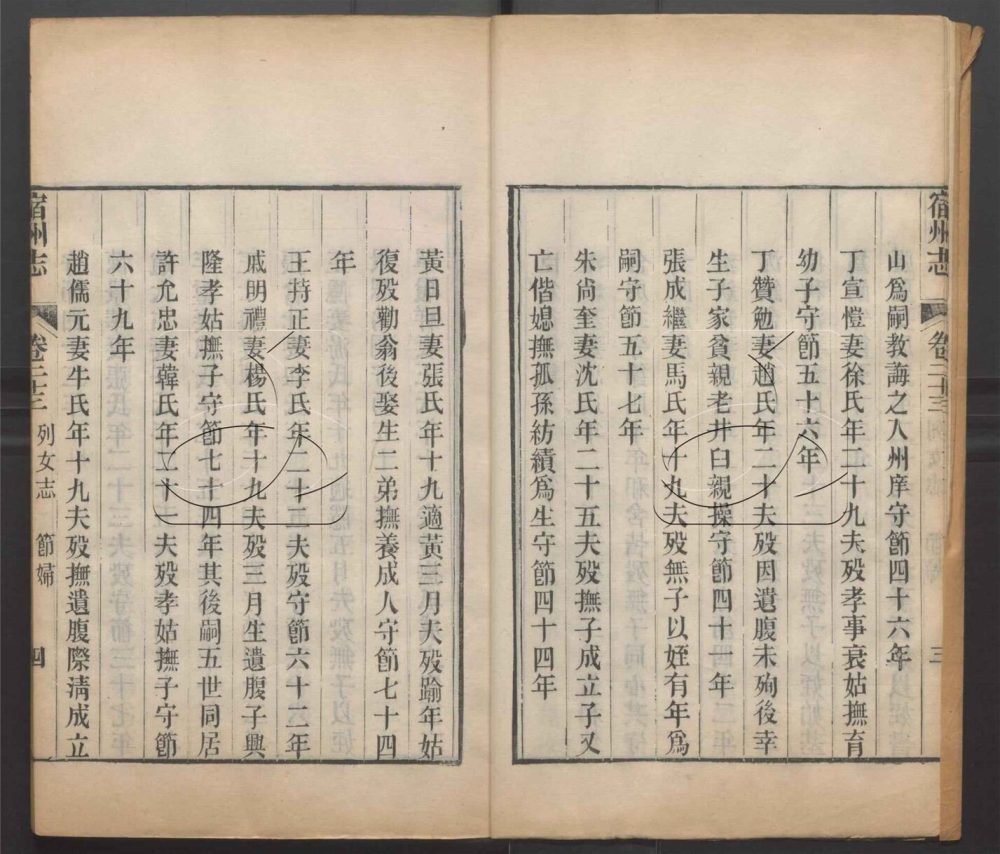 宿州志 卷二十三 三
山爲嗣教誨之入州庠守節四十六年
丁宣愷妻徐氏年二十九夫殁孝事衰姑撫育
幼子守節五十六年
丁贊勉妻趙氏年二十夫殁因遺腹未殉後幸
生子家貧親老井臼親操守節四十一年
張成繼妻馬氏年十九夫殁無子以姪有年爲
嗣守節五十七年
朱尚奎妻沈氏年二十五夫殁撫子成立子又
亡偕媳撫孤孫紡績爲生守節四十四年
黃日旦妻張氏年十九適黃三月夫殁踰年姑
復殁勸翁後娶生二弟撫養成人守節七十四
年
王持正妻李氏年二十五夫殁守節六十二年
戚明禮妻楊氏年十九夫殁三月生遺腹子興
隆孝姑撫子守節七十四年其後嗣五世同居
許允忠妻韓氏年二十一夫殁孝姑撫子守節
六十九年
趙儒元妻牛氏年十九夫殁撫遺腹際清成立
宿州志 卷二十三 列女志 節婦 四